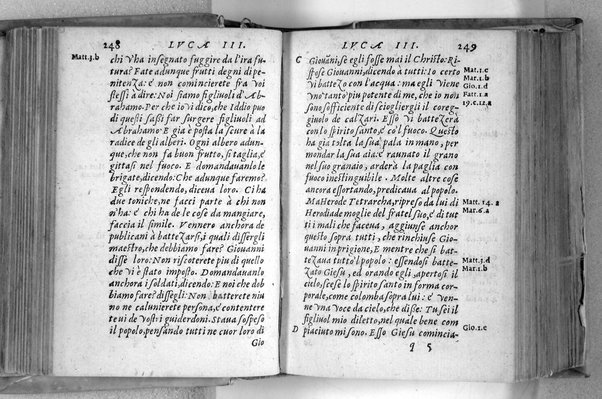 248 LVCA III.
Matt.3.b
chi v'ha insegnato fuggire da l'ira fu
tura? Fate adunque frutti degni di pe
nitenza: & non comincierete fra voi
stessi à dire: Noi siamo figliuoli d'Ab
brahamo. Per che io vi dico, che Iddio puo
di questi sassi far surgere figliuoli ad
Abrahamo. E gia è posta la scure à la
radice de gli alberi. Ogni albero adun
que, che non fa buon frutto, si taglia, e
gittasi nel fuoco. E domandauanlo le
brigate, dicendo: Che adunque faremo?
Egli respondendo, diceua loro. Ci ha
due toniche, ne facci parte à chi non
n'ha: & chi ha de le cose da mangiare,
faccia il simile. Vennero anchora de
publicani à battezarsi, i quali dissergli
maestro, che debbiamo fare? Giouanni
disse loro: Non riscoterete piu di quello
che vi è stato imposto. Domandauanlo
anchora i soldati, dicendo: E noi che dob
biamo fare? dissegli: Non batterete niu
no ne calunierete persona, & contentere
te ui de vostri guiderdoni. Staua sospeso
il popolo, pensando tutti ne cuor loro di
Gio
LVCA III. 249
C
Giouāni, se egli fosse mai il Christo: Ri
spose Giouanni, dicendo à tutti: Io certo
Mat.3.c
vi battezo con l'acqua: ma egli viene
Mar.1.b
vno tanto piu potente di me, che io nōi
Gio.1.d
sono sofficiente di sciogliergli il coreg
Fatt.1.a
ginolo de calzari. Esso vi battezerà
19.e.11.a
con lo spirito santo, & co'l fuoco. Questo
ha gia tolta la sua pala in mano, per
mondar la sua aia: & raunato il grano
nel suo granaio, arderà la paglia con
fuoco inestinguibile. Molte altre cose
ancora essortando, predicaua al popolo.
Ma Herode Tetrarcha, ripreso da lui di
Matt.14.a
Herodiade moglie del fratel suo, & di tut
Mar.6.a
ti i mali che faceua, aggiunse anchor
questo sopra tutti, che rinchiuse Gio
uanni in prigione, E mentre che si bat
tezaua tutto'l popolo: essendosi batte-
Matt.3.d
zato Giesu, ed orando egli, apertosi il
Mar.1.b
cielo, scese lo spirito santo in forma cor
porale, come colomba sopra lui: & ven-
ne vna voce da cielo, che disse: Tu sei il
figliuol mio diletto, nel quale bene com
Gio.1.e
D
piaciuto mi sono. Esso Giesu comincia-
q 5